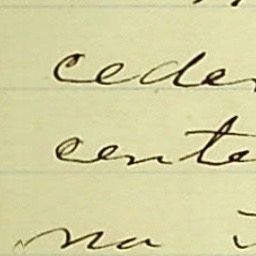 ceder
cente
na